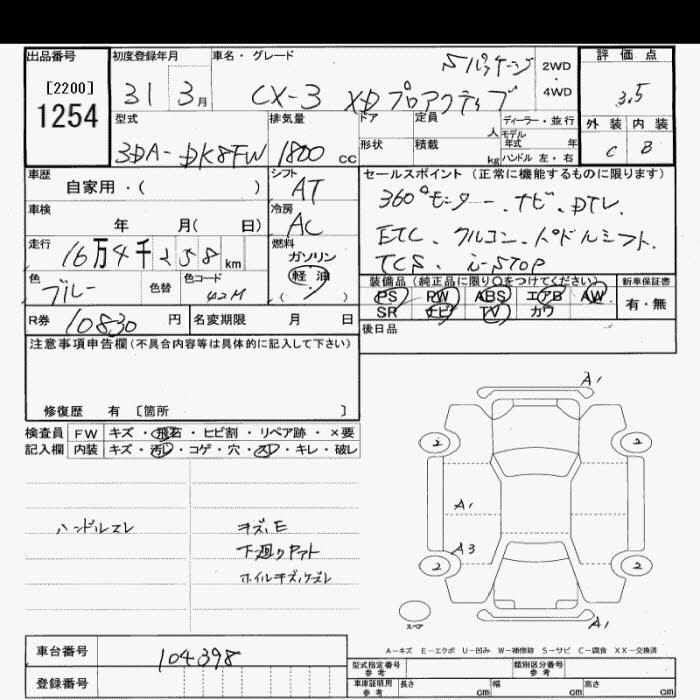 出品番号
[2200]
1254
初度登録年月
31 3月
車名・グレード
Sパッケージ
CX-3 XDプロアクティブ
2WD
・
4WD
評価点
3.5
外装 内装
C B
型式
3DA-DK8FW
排気量
1800 cc
ドア
定員
人
形状
積載
kg
ディーラー・並行
モデル
年式 年
ハンドル 左・右
車歴
自家用・( )
シフト
AT
車検
年 月( 日)
冷房
AC
走行
16万4千258km
燃料
ガソリン
軽油
( ・ )
色
ブルー
色替
色コード
42M
セールスポイント(正常に機能するものに限ります)
360°モニター、ナビ、DTV、
ETC、クルコン、パドルシフト、
TCS、i-STOP
装備品(純正品に限り○をつけてください)
PS PW ABS エアB AW
SR ナビ TV カワ
新車保証書
有・無
R券
10830 円
名変期限 月 日
後日品
注意事項申告欄(不具合内容等は具体的に記入して下さい)
修復歴 有 〔箇所 〕
検査員
記入欄
FW キズ・飛石・ヒビ割・リペア跡・×要
内装 キズ・汚レ・コゲ・穴・スレ・キレ・破レ
ハンドルスレ
キズ、E
下廻りサスト
ホイルキズ、ケズレ
A1
2 2
A1
A3
2 2
スペア
A1
A-キズ E-エクボ U-凹み W-補修跡 S-サビ C-腐食 XX-交換済
車台番号
104398
登録番号
型式指定番号
参考
類別区分番号
参考
車庫証明用
参考
長さ cm
幅 cm
高さ cm